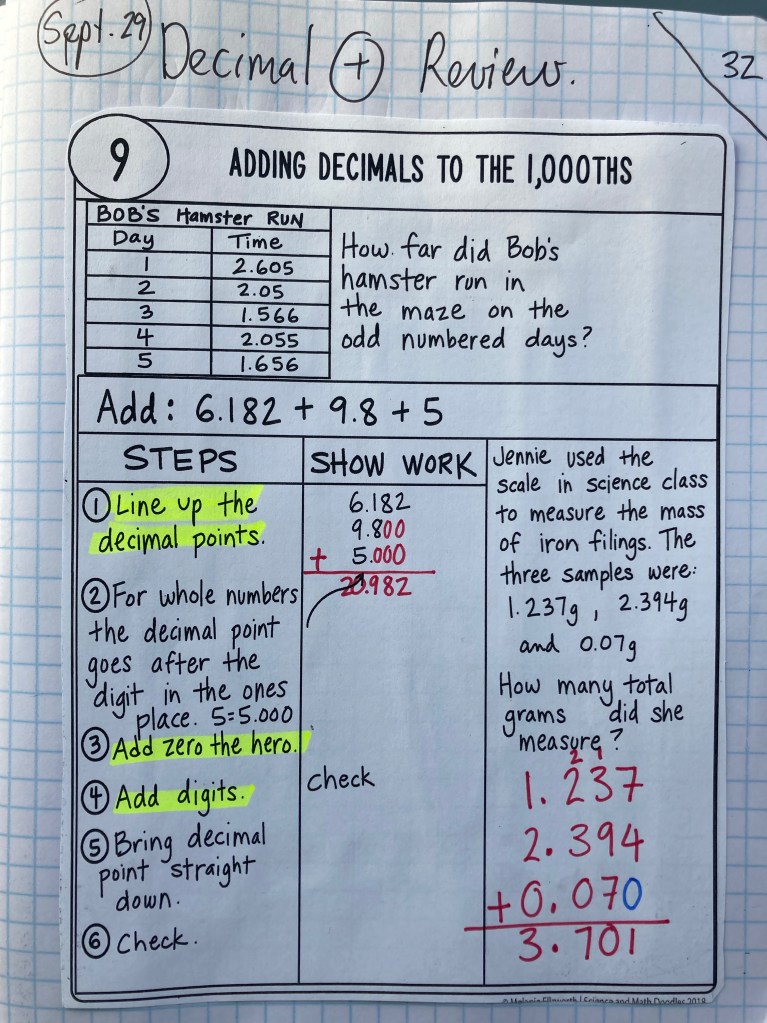 Sept. 29
Decimal + Review.
32
9
ADDING DECIMALS TO THE 1,000THS
BOB'S Hamster RUN
Day Time
1 2.605
2 2.05
3 1.566
4 2.055
5 1.656
How far did Bob's
hamster run in
the maze on the
odd numbered days?
Add: 6.182 + 9.8 + 5
STEPS
① Line up the
decimal points.
② For whole numbers
the decimal point
goes after the
digit in the ones
place. 5=5.000
③ Add zero the hero.
④ Add digits.
⑤ Bring decimal
point straight
down.
⑥ Check.
SHOW WORK
6.182
9.800
+ 5.000
20.982
check
Jennie used the
scale in science class
to measure the mass
of iron filings. The
three samples were:
1.237g, 2.394g
and 0.07g
How many total
grams did she
measure?
2 1
1.237
2.394
+0.070
3.701
© Melanie Ellsworth | Science and Math Doodles 2019